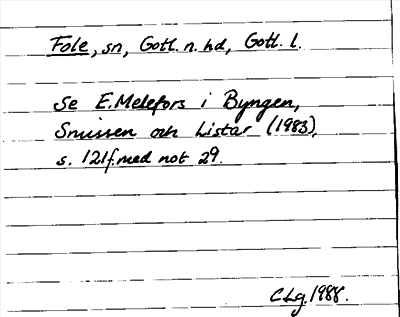 Fole, sn, Gotl. n. hd, Gotl. l.
Se E. Melefors i Byngen,
Snusen och Listar (1983),
s. 121f. med not 29.
CLg. 1988.